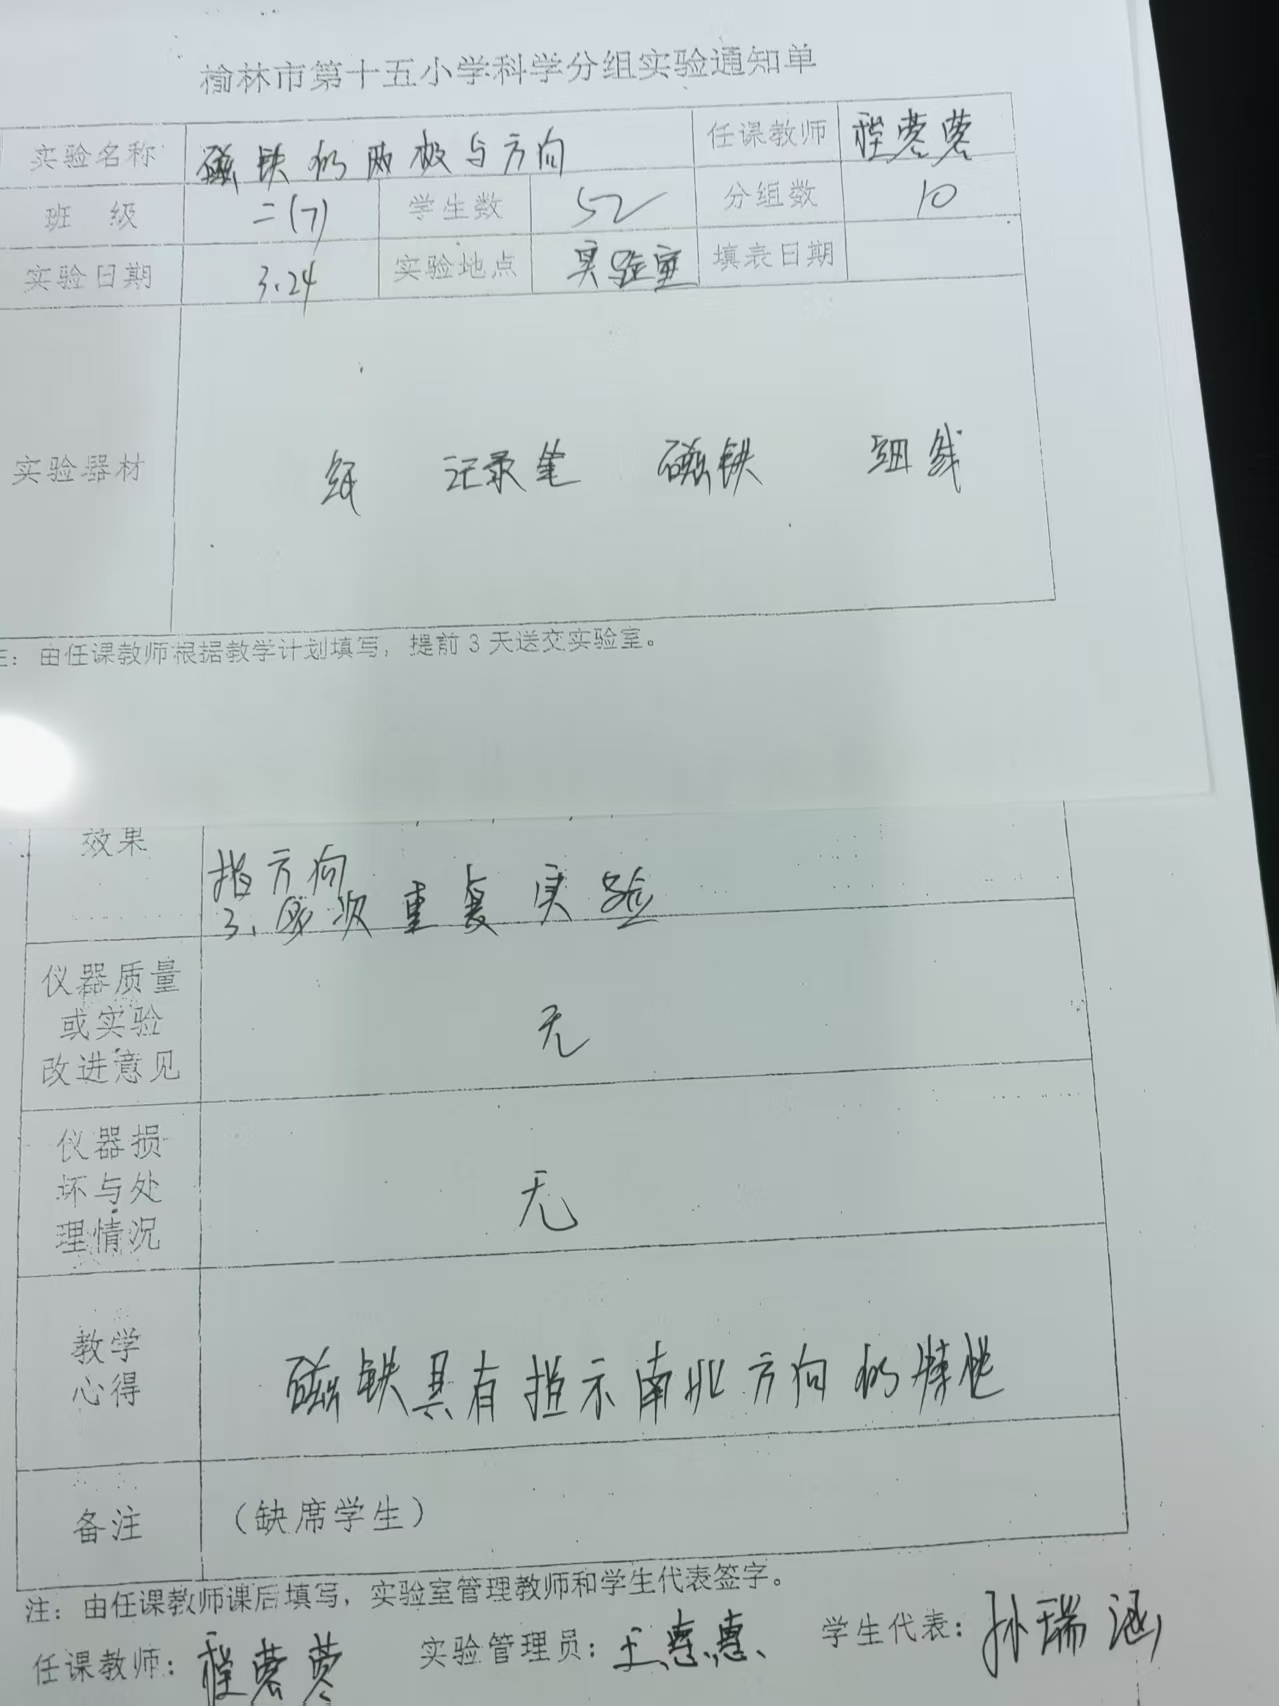 榆林市第十五小学科学分组实验通知单
实验名称 磁铁的两极与方向 任课教师 程蓉蓉
班 级 二(7) 学生数 52 分组数 10
实验日期 3.24 实验地点 实验室 填表日期
实验器材 纸 记录笔 磁铁 细线
注：由任课教师根据教学计划填写，提前3天送交实验室。
效果 指方向
3、多次重复实验
仪器质量
或实验
改进意见 无
仪器损
坏与处
理情况 无
教学
心得 磁铁具有指示南北方向的特性
备注 （缺席学生）
注：由任课教师课后填写，实验室管理教师和学生代表签字。
任课教师：程蓉蓉 实验管理员：王惠惠 学生代表：孙瑞涵